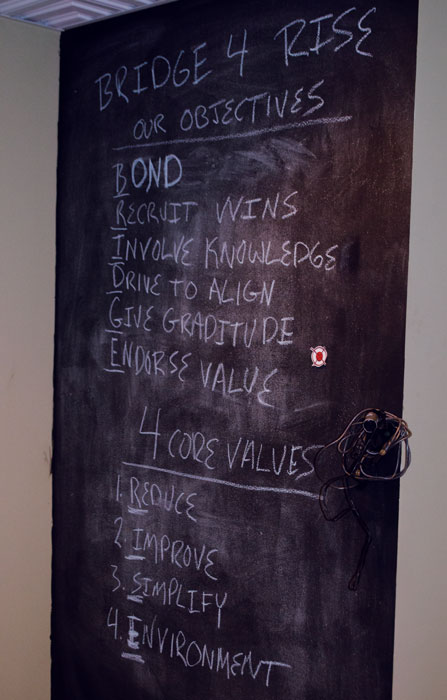 BRIDGE 4 RISE
OUR OBJECTIVES
BOND
RECRUIT WINS
INVOLVE KNOWLEDGE
DRIVE TO ALIGN
GIVE GRADITUDE
ENDORSE VALUE
4 CORE VALUES
1. REDUCE
2. IMPROVE
3. SIMPLIFY
4. ENVIRONMENT